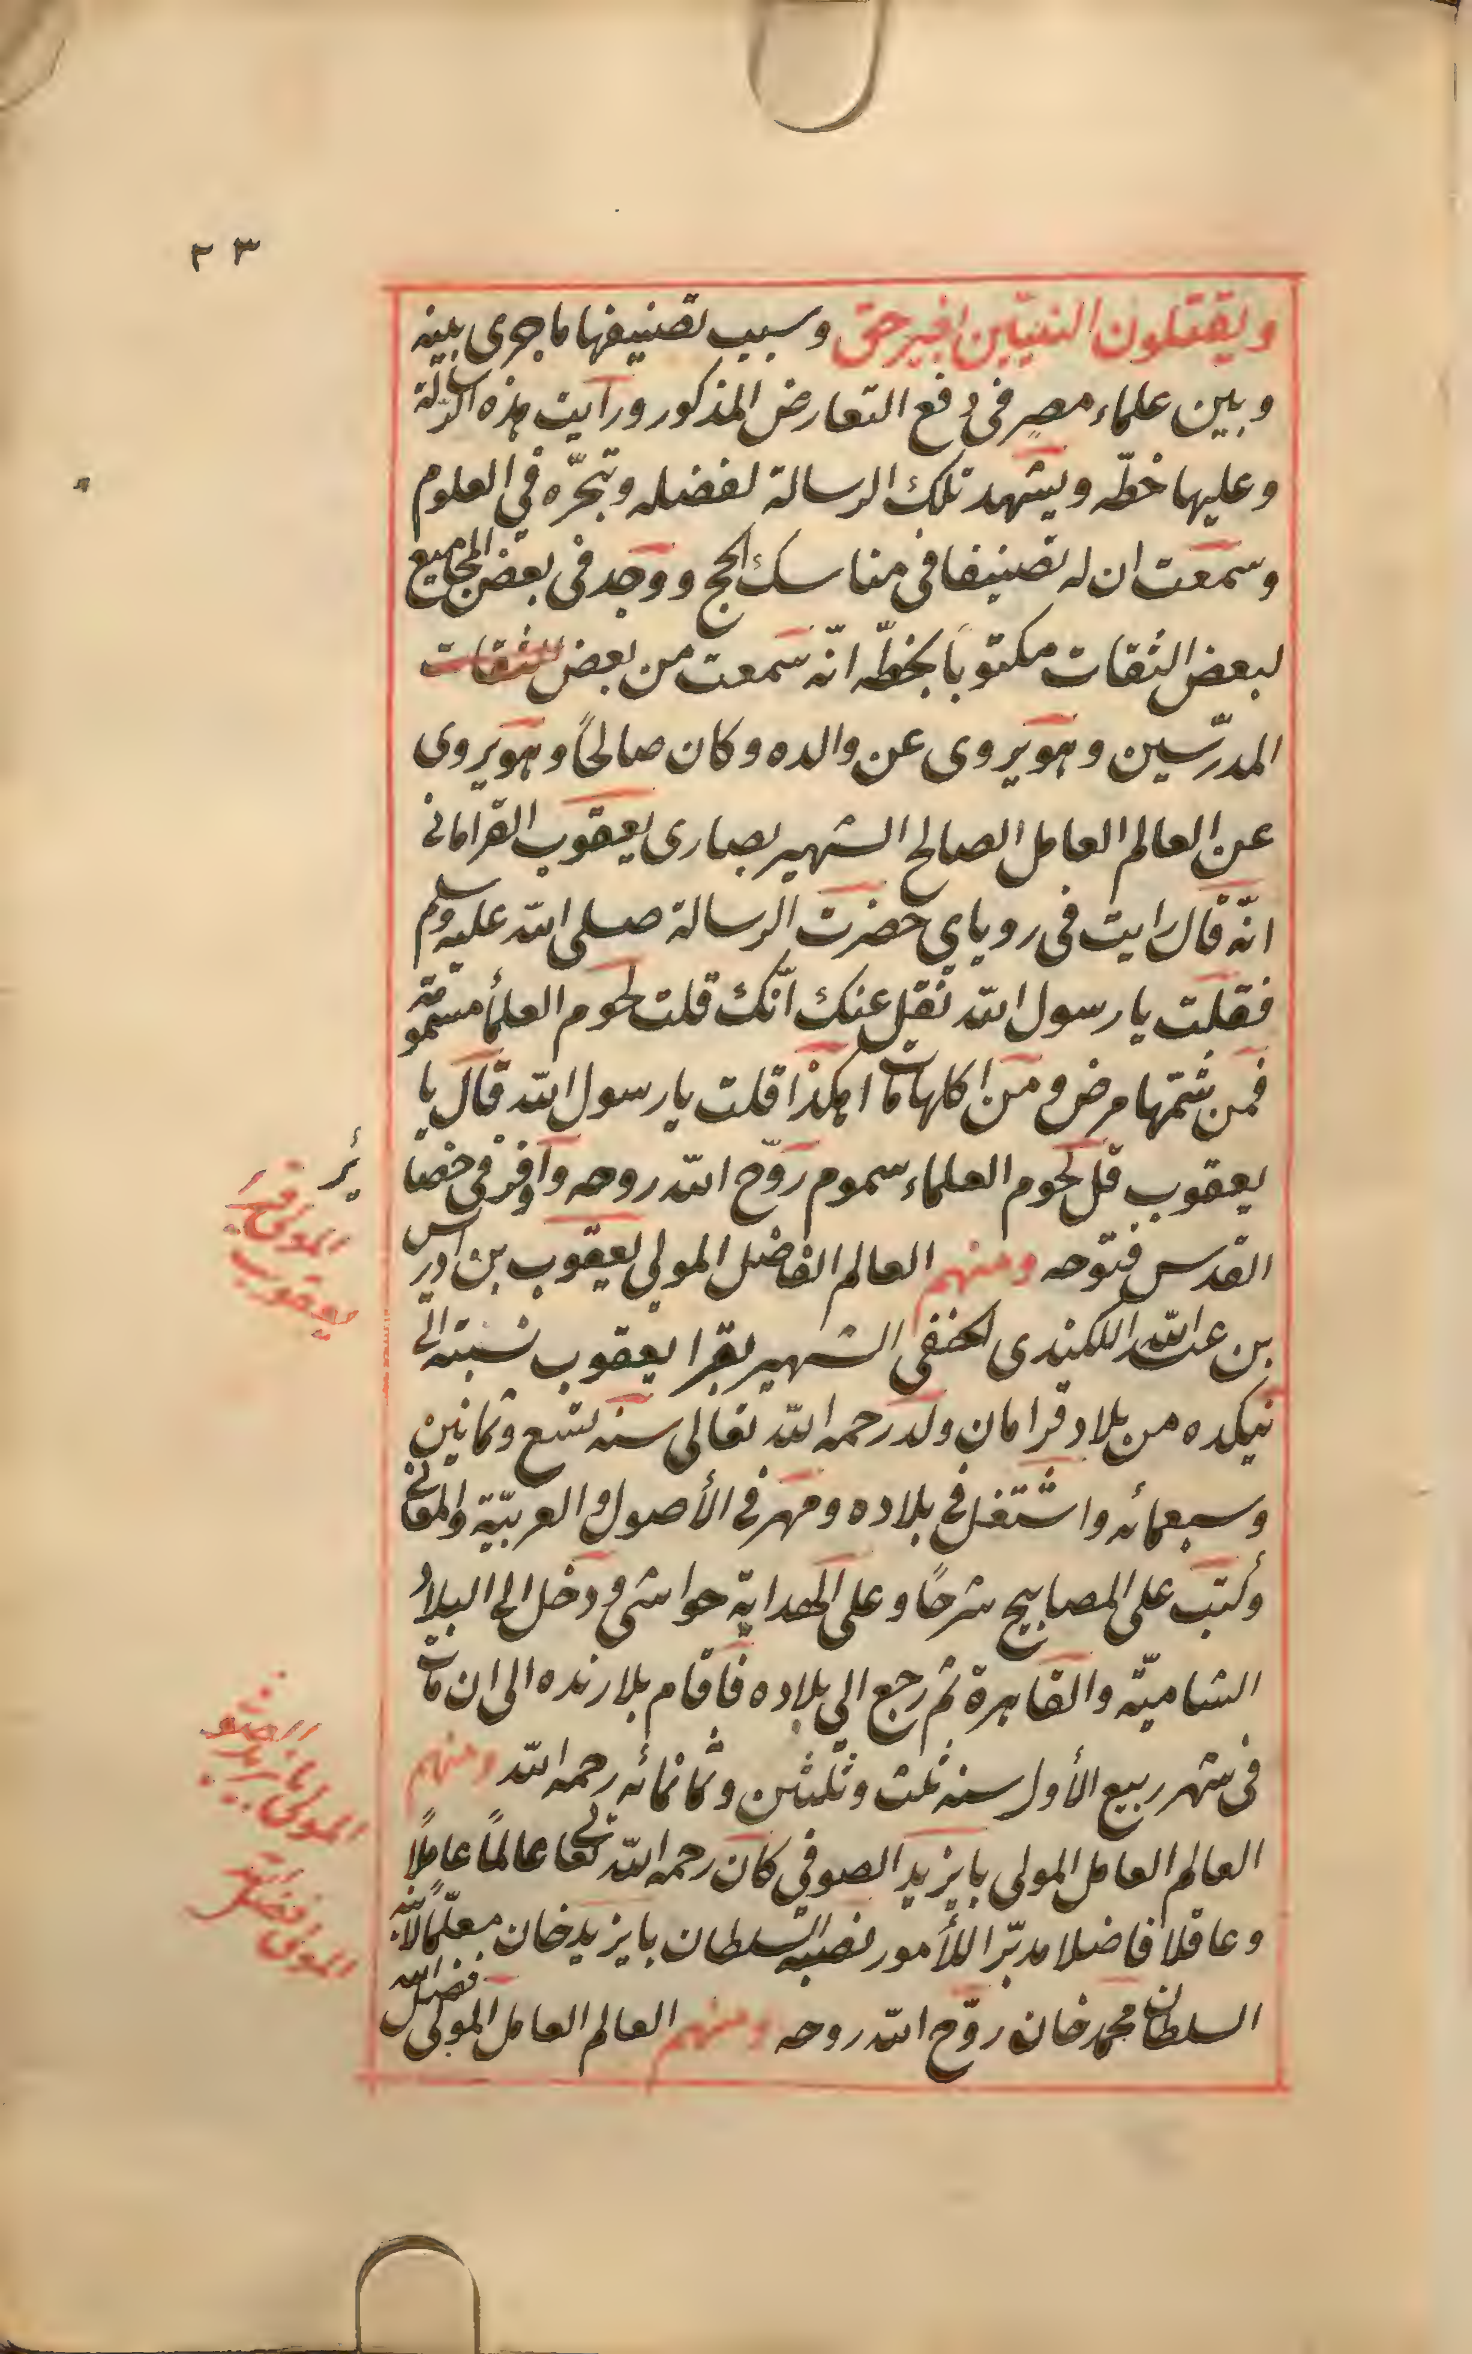 ٢٣
ويقتلون النبيّين بغير حق وسبب تصنيفها ما جرى بينه
وبين علماء مصر فى دفع التعارض المذكور ورايت هذه الرسالة
وعليها خطّه ويشهد تلك الرسالة لفضله وتبحّره في العلوم
وسمعت ان له تصنيفا فى مناسك الحج ووجد فى بعض المجاميع
لبعض الثقات مكتوبا بخطّه انّه سمعت من بعض الثقات
المدرّسين وهو يروى عن والده وكان صالحًا وهو يروى
عن العالم العامل الصالح الشهير بصارى يعقوب القرامانى
انّه قال رايت فى روياي حضرت الرسالة صلى الله عليه وسلم
فقلت يا رسول الله نقل عنك انّك قلت لحوم العلمأ مسمومة
فمن شمّها مرض ومن اكلها مات اهكذا قلت يا رسول الله قال يا
يعقوب قل لحوم العلماء سموم روّح الله روحه واوفر فى خضا
ئر
القدس فتوحه ومنهم العالم الفاضل المولى يعقوب بن ادريس
بن عبد الله اللكندى الحنفى الشهير بقرا يعقوب نسبته الى
نيكده من بلاد قرامان ولد رحمه الله تعالى سنه تسع وثمانين
وسبعمائه واشتغل فى بلاده ومهر فى الأصول والعربيّة والمعانى
وكتب على المصابيح شرحًا وعلى الهداية حواشى ودخل الى البلاد
الشاميّة والقاهرة ثم رجع الى بلاده فاقام بلارنده الى ان مات
فى شهر ربيع الأول سنه ثلث وثلثين وثمانمائه رحمه الله ومنهم
العالم العامل المولى بايزيد الصوفي كان رحمه الله تعالى عالمًا عاملًا
وعاقلا فاضلا مدبّرا للأمور نصبه السلطان بايزيد خان معلّمًا لابنه
السلطان محمد خان روّح الله روحه ومنهم العالم العامل المولى فضل الله
المولى قرا
يعقوب
المولى بايزيد
الصوفى
المولى فضل الله